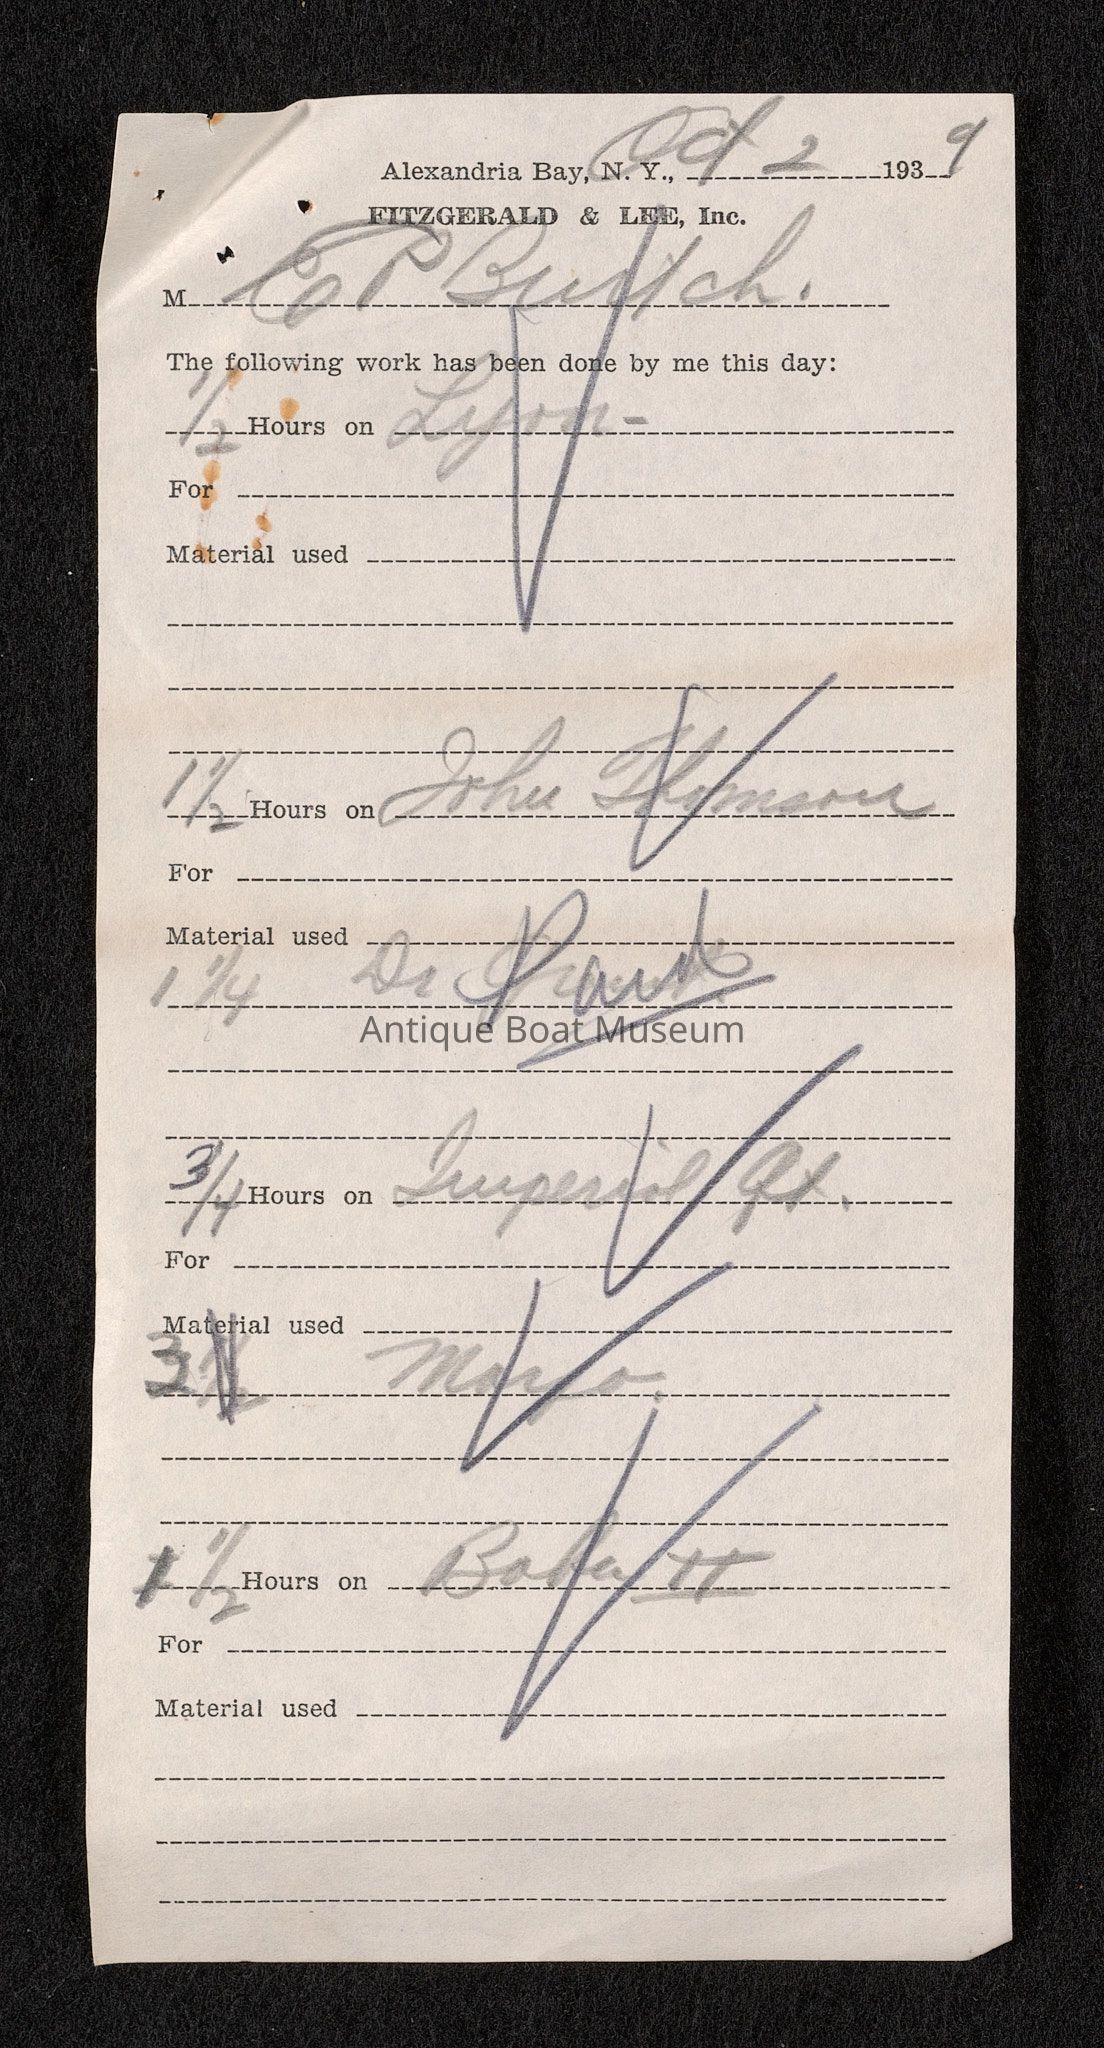 Alexandria Bay, N. Y., Oct 2 1939
FITZGERALD & LEE, Inc.
M E P Burtch.
The following work has been done by me this day:
1/2 Hours on Lyon -
For
Material used
1 1/2 Hours on John Thomson
For
Material used
1 1/4 Dr
Antique Boat Museum
3/4 Hours on Imperial Qt.
For
Material used
Margo.
1 1/2 Hours on Baker II
For
Material used